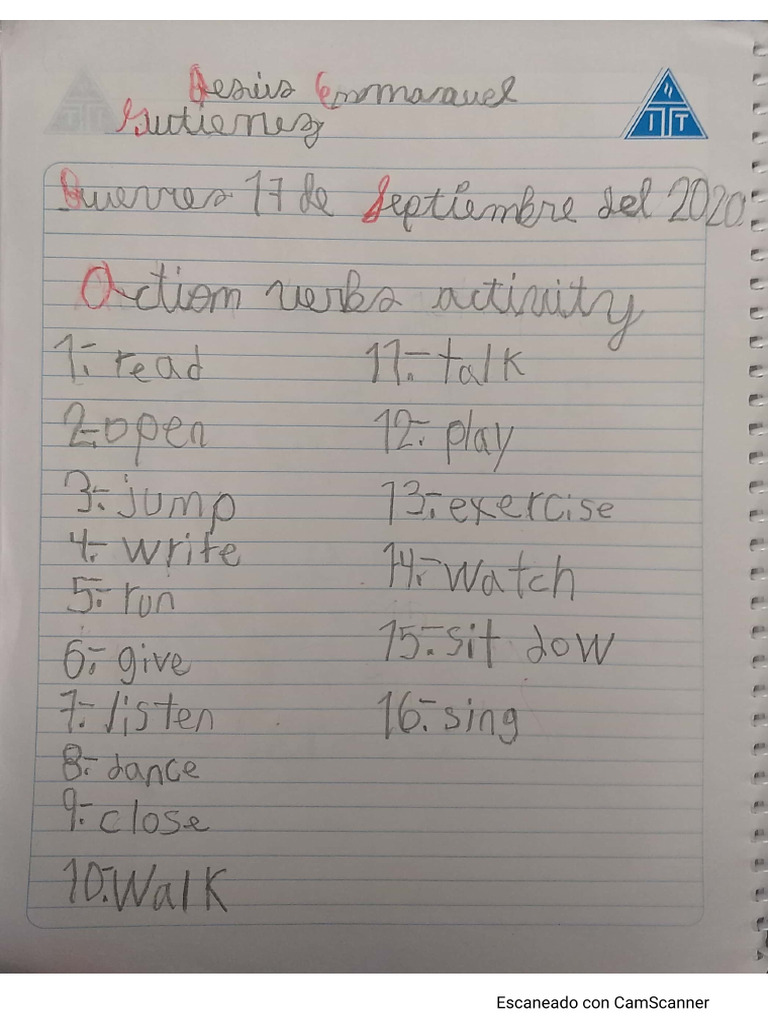 Jesús Emmanuel
Gutierrez
ITT
Jueves 17 de Septiembre del 2020
Action verbs activity
1.- read
2.- open
3.- jump
4.- write
5.- run
6.- give
7.- listen
8.- dance
9.- close
10.- Walk
11.- talk
12.- play
13.- exercise
14.- watch
15.- sit dow
16.- sing
Escaneado con CamScanner